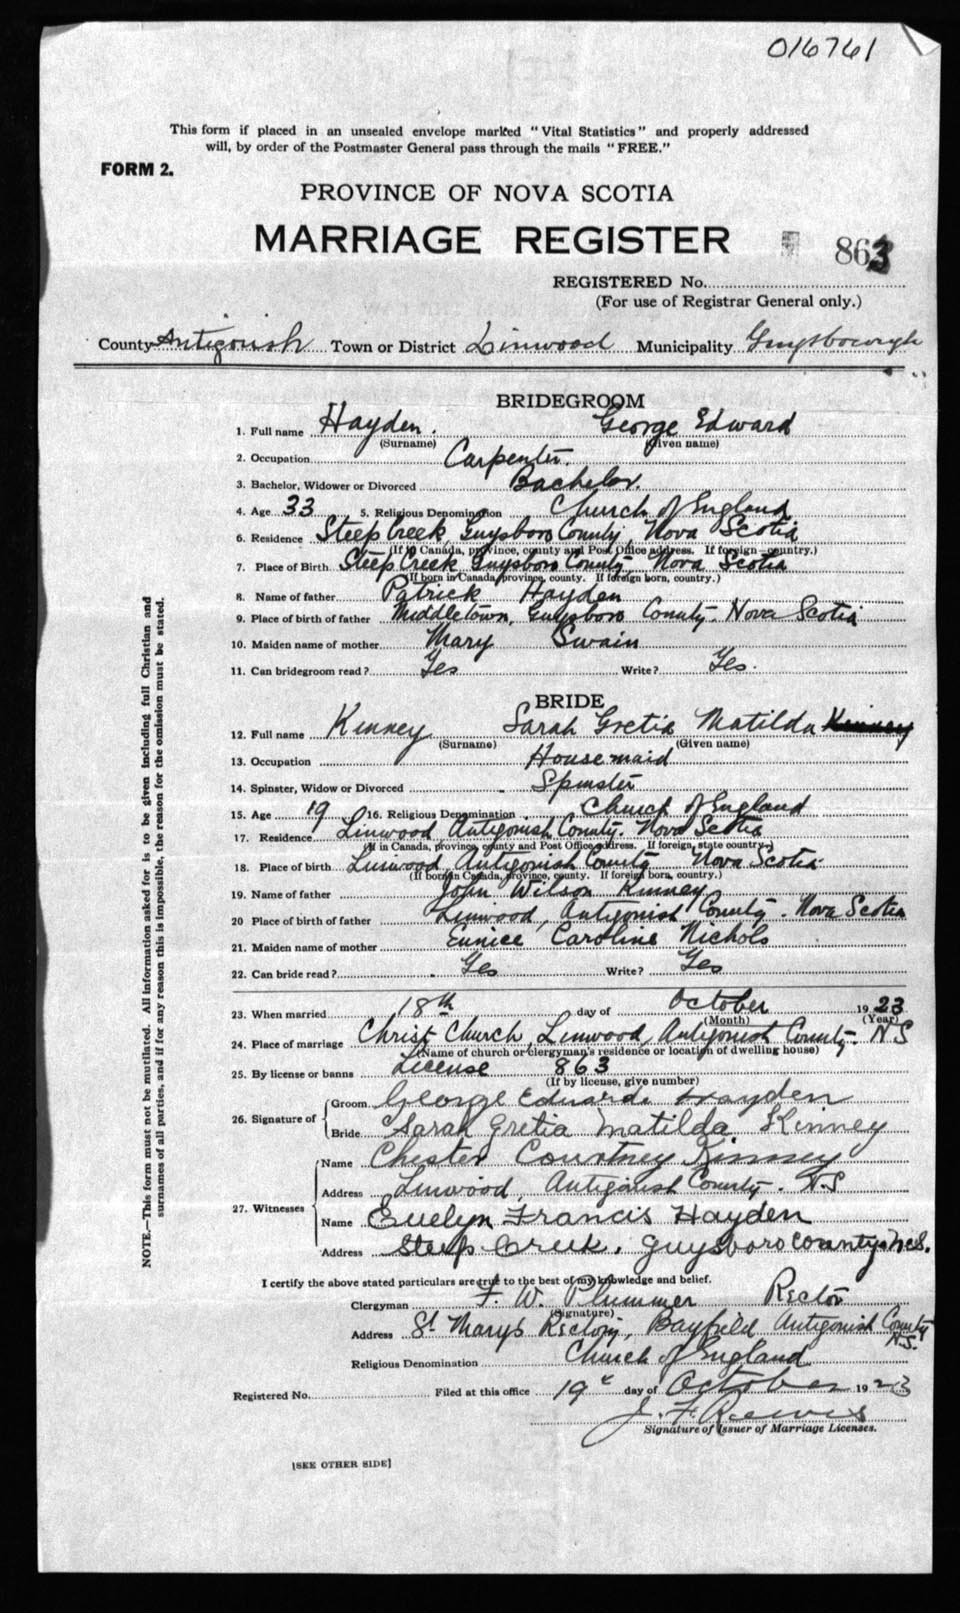 016761
This form if placed in an unsealed envelope marked "Vital Statistics" and properly addressed
will, by order of the Postmaster General pass through the mails "FREE."
FORM 2.
PROVINCE OF NOVA SCOTIA
MARRIAGE REGISTER
863
REGISTERED No.
(For use of Registrar General only.)
County Antigonish Town or District Linwood Municipality Guysborough
BRIDEGROOM
1. Full name Hayden. George Edward
(Surname) (Given name)
2. Occupation Carpenter.
3. Bachelor, Widower or Divorced Bachelor.
4. Age 33 5. Religious Denomination Church of England
6. Residence Steep Creek, Guysboro County, Nova Scotia
(If in Canada, province, county and Post Office address. If foreign—country.)
7. Place of Birth Steep Creek Guysboro County, Nova Scotia
(If born in Canada, province, county. If foreign born, country.)
8. Name of father Patrick Hayden
9. Place of birth of father Middletown, Guysboro County. Nova Scotia
10. Maiden name of mother Mary Swain
11. Can bridegroom read? Yes Write? Yes.
BRIDE
12. Full name Kinney Sarah Gretia Matilda Kinney
(Surname) (Given name)
13. Occupation Housemaid
14. Spinster, Widow or Divorced Spinster
15. Age 19 16. Religious Denomination Church of England
17. Residence Linwood Antigonish County. Nova Scotia
(If in Canada, province, county and Post Office address. If foreign, state country.)
18. Place of birth Linwood, Antigonish County Nova Scotia
(If born in Canada, province, county. If foreign born, country.)
19. Name of father John Wilson Kinney
20 Place of birth of father Linwood, Antigonish County. Nova Scotia
21. Maiden name of mother Eunice Caroline Nichols
22. Can bride read? Yes Write? Yes
23. When married 18th day of October 1923
(Month) (Year)
24. Place of marriage Christ Church, Linwood, Antigonish County. N S
(Name of church or clergyman's residence or location of dwelling house)
25. By license or banns License 863
(If by license, give number)
26. Signature of Groom George Edward Hayden
Bride Sarah Gretia Matilda Kinney
27. Witnesses Name Chester Courtney Kinney
Address Linwood, Antigonish County. N.S
Name Evelyn Francis Hayden
Address Steep Creek, Guysboro County N.S.
I certify the above stated particulars are true to the best of my knowledge and belief.
Clergyman F. W. Plummer Rector
(Signature)
Address St Mary's Rectory, Bayfield Antigonish County N.S.
Religious Denomination Church of England
Registered No. Filed at this office 19th day of October 1923
J. F. Reeves
Signature of Issuer of Marriage Licenses.
[SEE OTHER SIDE]
NOTE.—This form must not be mutilated. All information asked for is to be given including full Christian and
surnames of all parties, and if for any reason this is impossible, the reason for the omission must be stated.